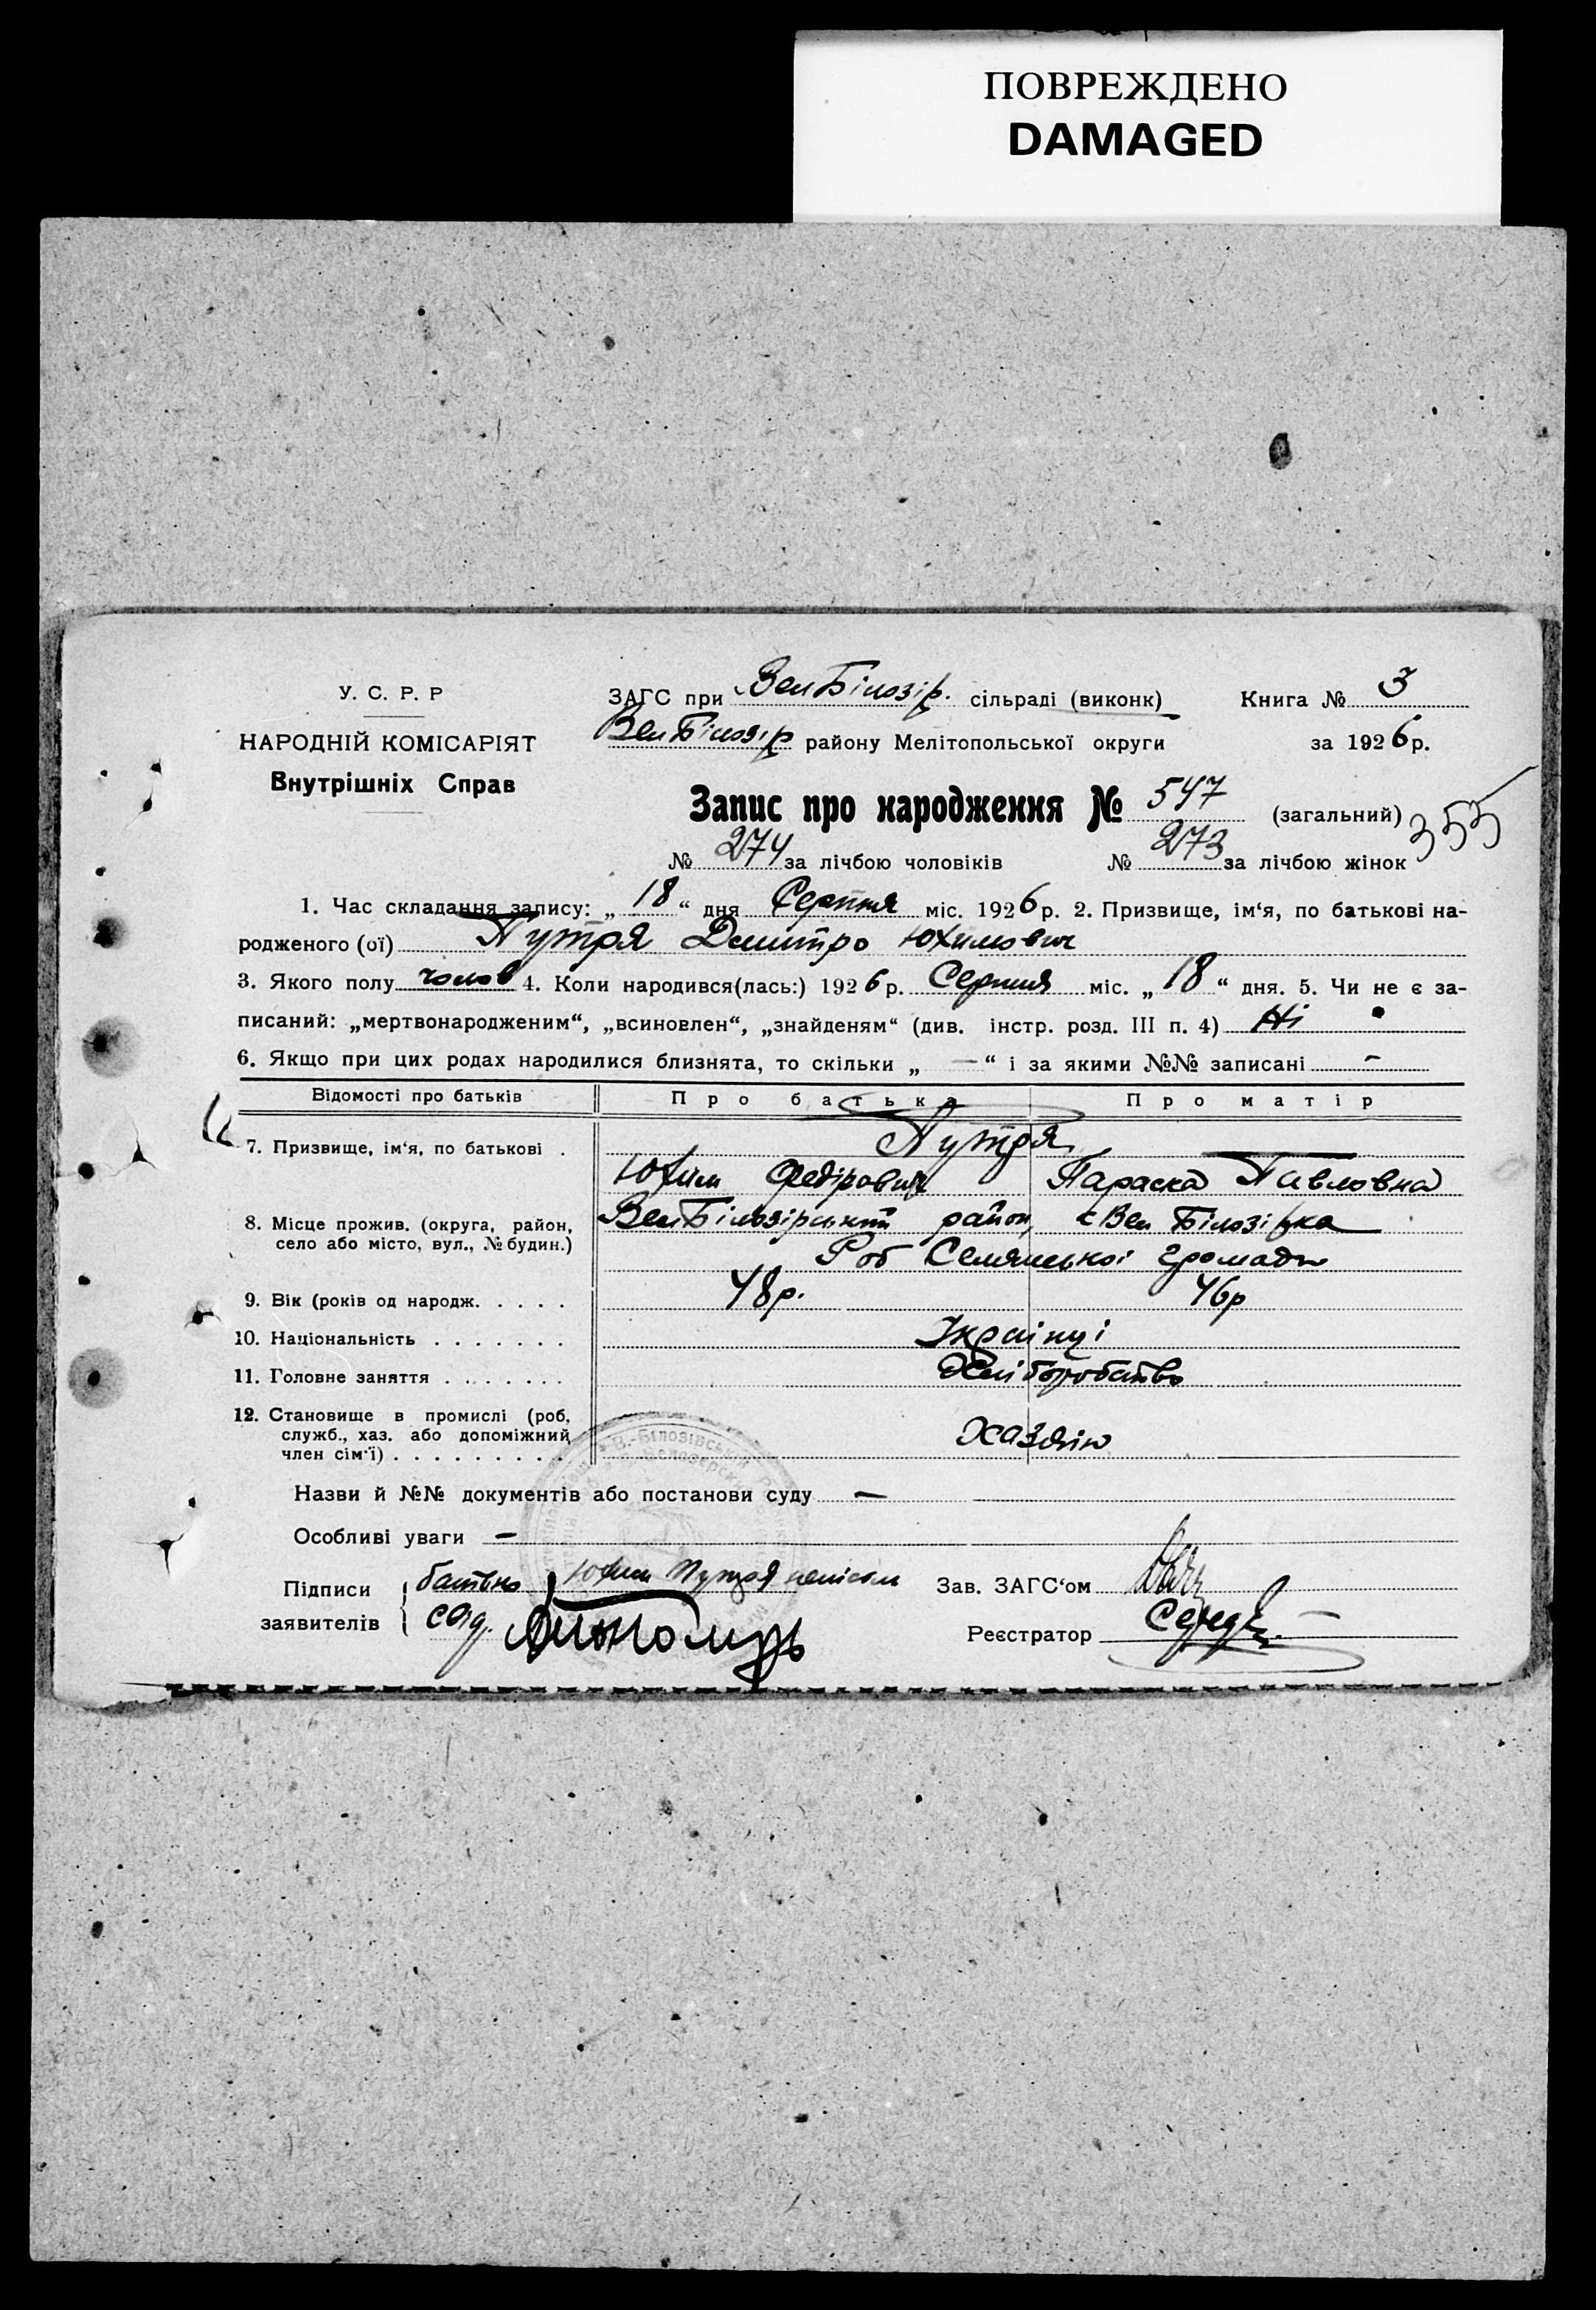 ПОВРЕЖДЕНО
DAMAGED
У. С. Р. Р
НАРОДНІЙ КОМІСАРІЯТ
Внутрішніх Справ
ЗАГС при Вел Білозір. сільраді (виконк)
Книга № 3
Вел Білозір району Мелітопольської округи
за 1926 р.
Запис про народження № 547 (загальний) 355
№ 274 за лічбою чоловіків № 273 за лічбою жінок
1. Час складання запису: „ 18 “ дня Серпня міс. 1926 р. 2. Призвище, ім‘я, по батькові на-
родженого (ої) Путря Дмитро Юхимович
3. Якого полу чолов 4. Коли народився(лась:) 1926 р. Серпня міс. „ 18 “ дня. 5. Чи не є за-
писаний: „мертвонародженим“, „всиновлен“, „знайденям“ (див. інстр. розд. III п. 4) Ні
6. Якщо при цих родах народилися близнята, то скільки „ — “ і за якими №№ записані —
Відомості про батьків
Про батька
Про матір
7. Призвище, ім‘я, по батькові .
Путря
Юхим Федірович
Параска Павловна
8. Місце прожив. (округа, район,
село або місто, вул., № будин.)
Вел Білозірський район, с Вел Білозірка
Громади
9. Вік (років од народж. . . . .
48р.
46р
10. Національність . . . . . . .
Українці
11. Головне заняття . . . . . . .
Хліборобство
12. Становище в промислі (роб.
служб., хаз. або допоміжний
член сім‘ї) . . . . . . . . .
Хазяін
Назви й №№ документів або постанови суду —
Особливі уваги —
Підписи
заявителів
батько Юхим Путря
свід.
Зав. ЗАГС‘ом
Реєстратор